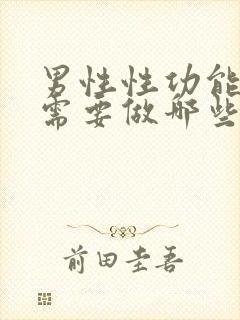 男性性功能
需要做哪些
前田圭吾